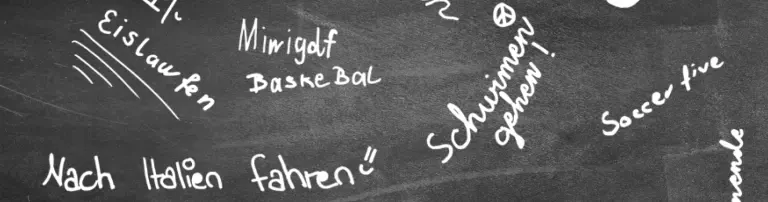 Eislaufen
Minigolf
BaskeBal
Schwimen
gehen!
Soccer five
Nach Italien fahren